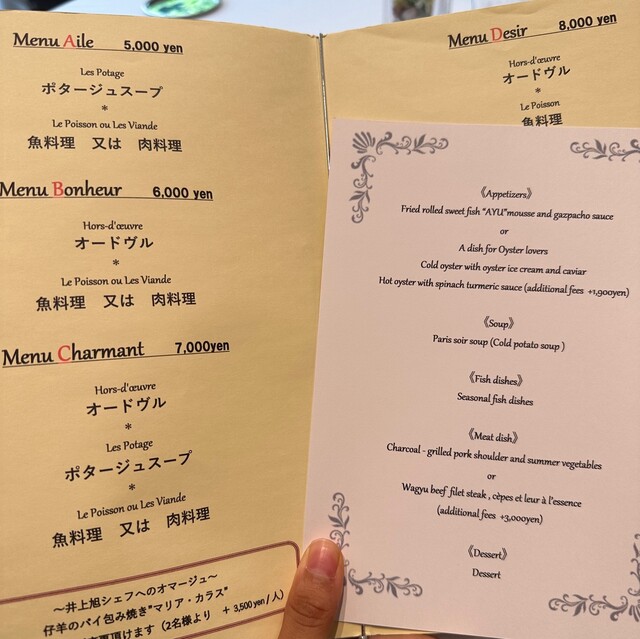 Menu Aile 5,000 yen
Les Potage
ポタージュスープ
*
Le Poisson ou Les Viande
魚料理 又は 肉料理
Menu Bonheur 6,000 yen
Hors-d'œuvre
オードヴル
*
Le Poisson ou Les Viande
魚料理 又は 肉料理
Menu Charmant 7,000yen
Hors-d'œuvre
オードヴル
*
Les Potage
ポタージュスープ
*
Le Poisson ou Les Viande
魚料理 又は 肉料理
～井上旭シェフへのオマージュ～
仔羊のパイ包み焼き"マリア・カラス"
変更頂けます（2名様より ＋3,500yen/人）
Menu Desir 8,000 yen
Hors-d'œuvre
オードヴル
*
Le Poisson
魚料理
《Appetizers》
Fried rolled sweet fish “AYU”mousse and gazpacho sauce
or
A dish for Oyster lovers
Cold oyster with oyster ice cream and caviar
Hot oyster with spinach turmeric sauce (additional fees +1,900yen)
《Soup》
Paris soir soup (Cold potato soup )
《Fish dishes》
Seasonal fish dishes
《Meat dish》
Charcoal - grilled pork shoulder and summer vegetables
or
Wagyu beef filet steak , cèpes et leur à l'essence
(additional fees +3,000yen)
《Dessert》
Dessert